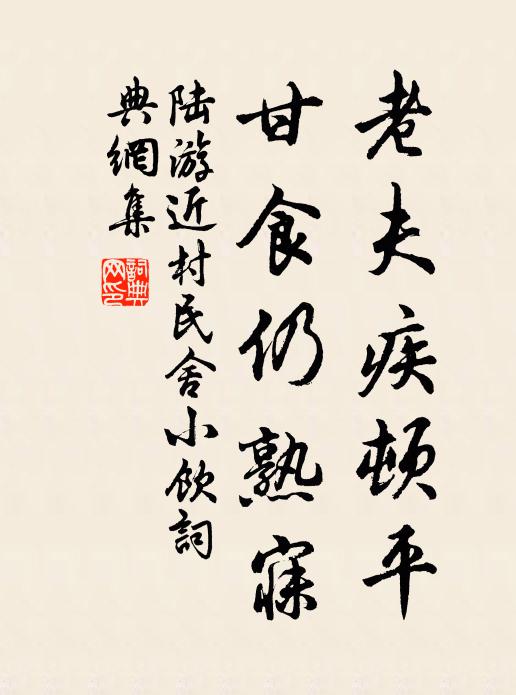 老夫疾頓平
甘食仍熟寐
陆游近村民舍小飲詞
典網集
詞典
网印